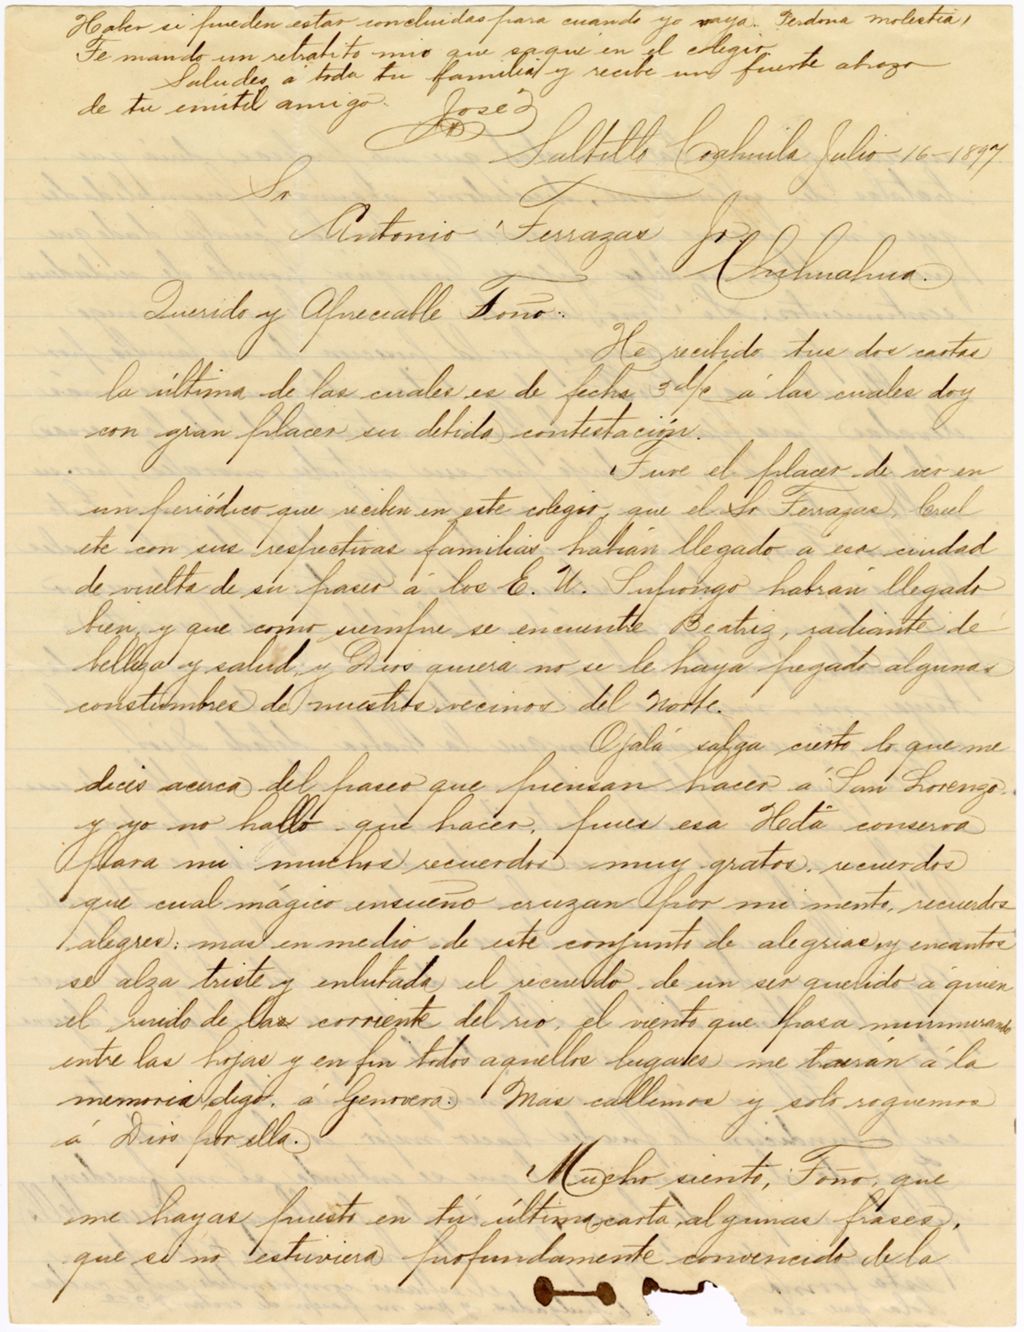 Haber si pueden estar concluidas para cuando yo vaya. Perdona molestia,
Te mando un retratito mio que saqué en el colegio.
Saludes á toda tu familia y recibe un fuerte abrazo
de tu inutil amigo.
José
Saltillo Coahuila Julio 16-1897.
Sr
Antonio Terrazas Jr.
Chihuahua.
Querido y Apreciable Toño:
He recibido tus dos cartas
la última de las cuales es de fecha 3 d/c á las cuales doy
con gran placer su debida contestación.
Tuve el placer de ver en
un periódico que reciben en este colegio, que el Sr Terrazas, Creel
etc con sus respectivas familias habían llegado a esa ciudad
de vuelta de su paseo á los E. U. Supongo habrán llegado
bien, y que como siempre se encuentre Beatriz, radiante de
belleza y salud, y Dios quiera no se le haya pegado algunas
constumbres de nuestros vecinos del Norte.
Ojalá salga cierto lo que me
dices acerca del paseo que piensan hacer a San Lorenzo,
y yo no hallo que hacer, pues esa Hda conserva
para mi muchos recuerdos muy gratos, recuerdos
que cual mágico ensueño cruzan por mi mente, recuerdos
alegres; mas en medio de este conjunto de alegrias y encantos
se alza triste y enlutada el recuerdo de un ser querido á quien
el ruido de las corriente del rio, el viento que pasa murmurando
entre las hojas y en fin todos aquellos lugares me traerán á la
memoria digo, á Genoveva. Mas callemos y solo roguemos
á Dios por ella.
Mucho siento, Toño, que
me hayas puesto en tú última carta, algunas frases,
que si no estuviera profundamente convencido de la